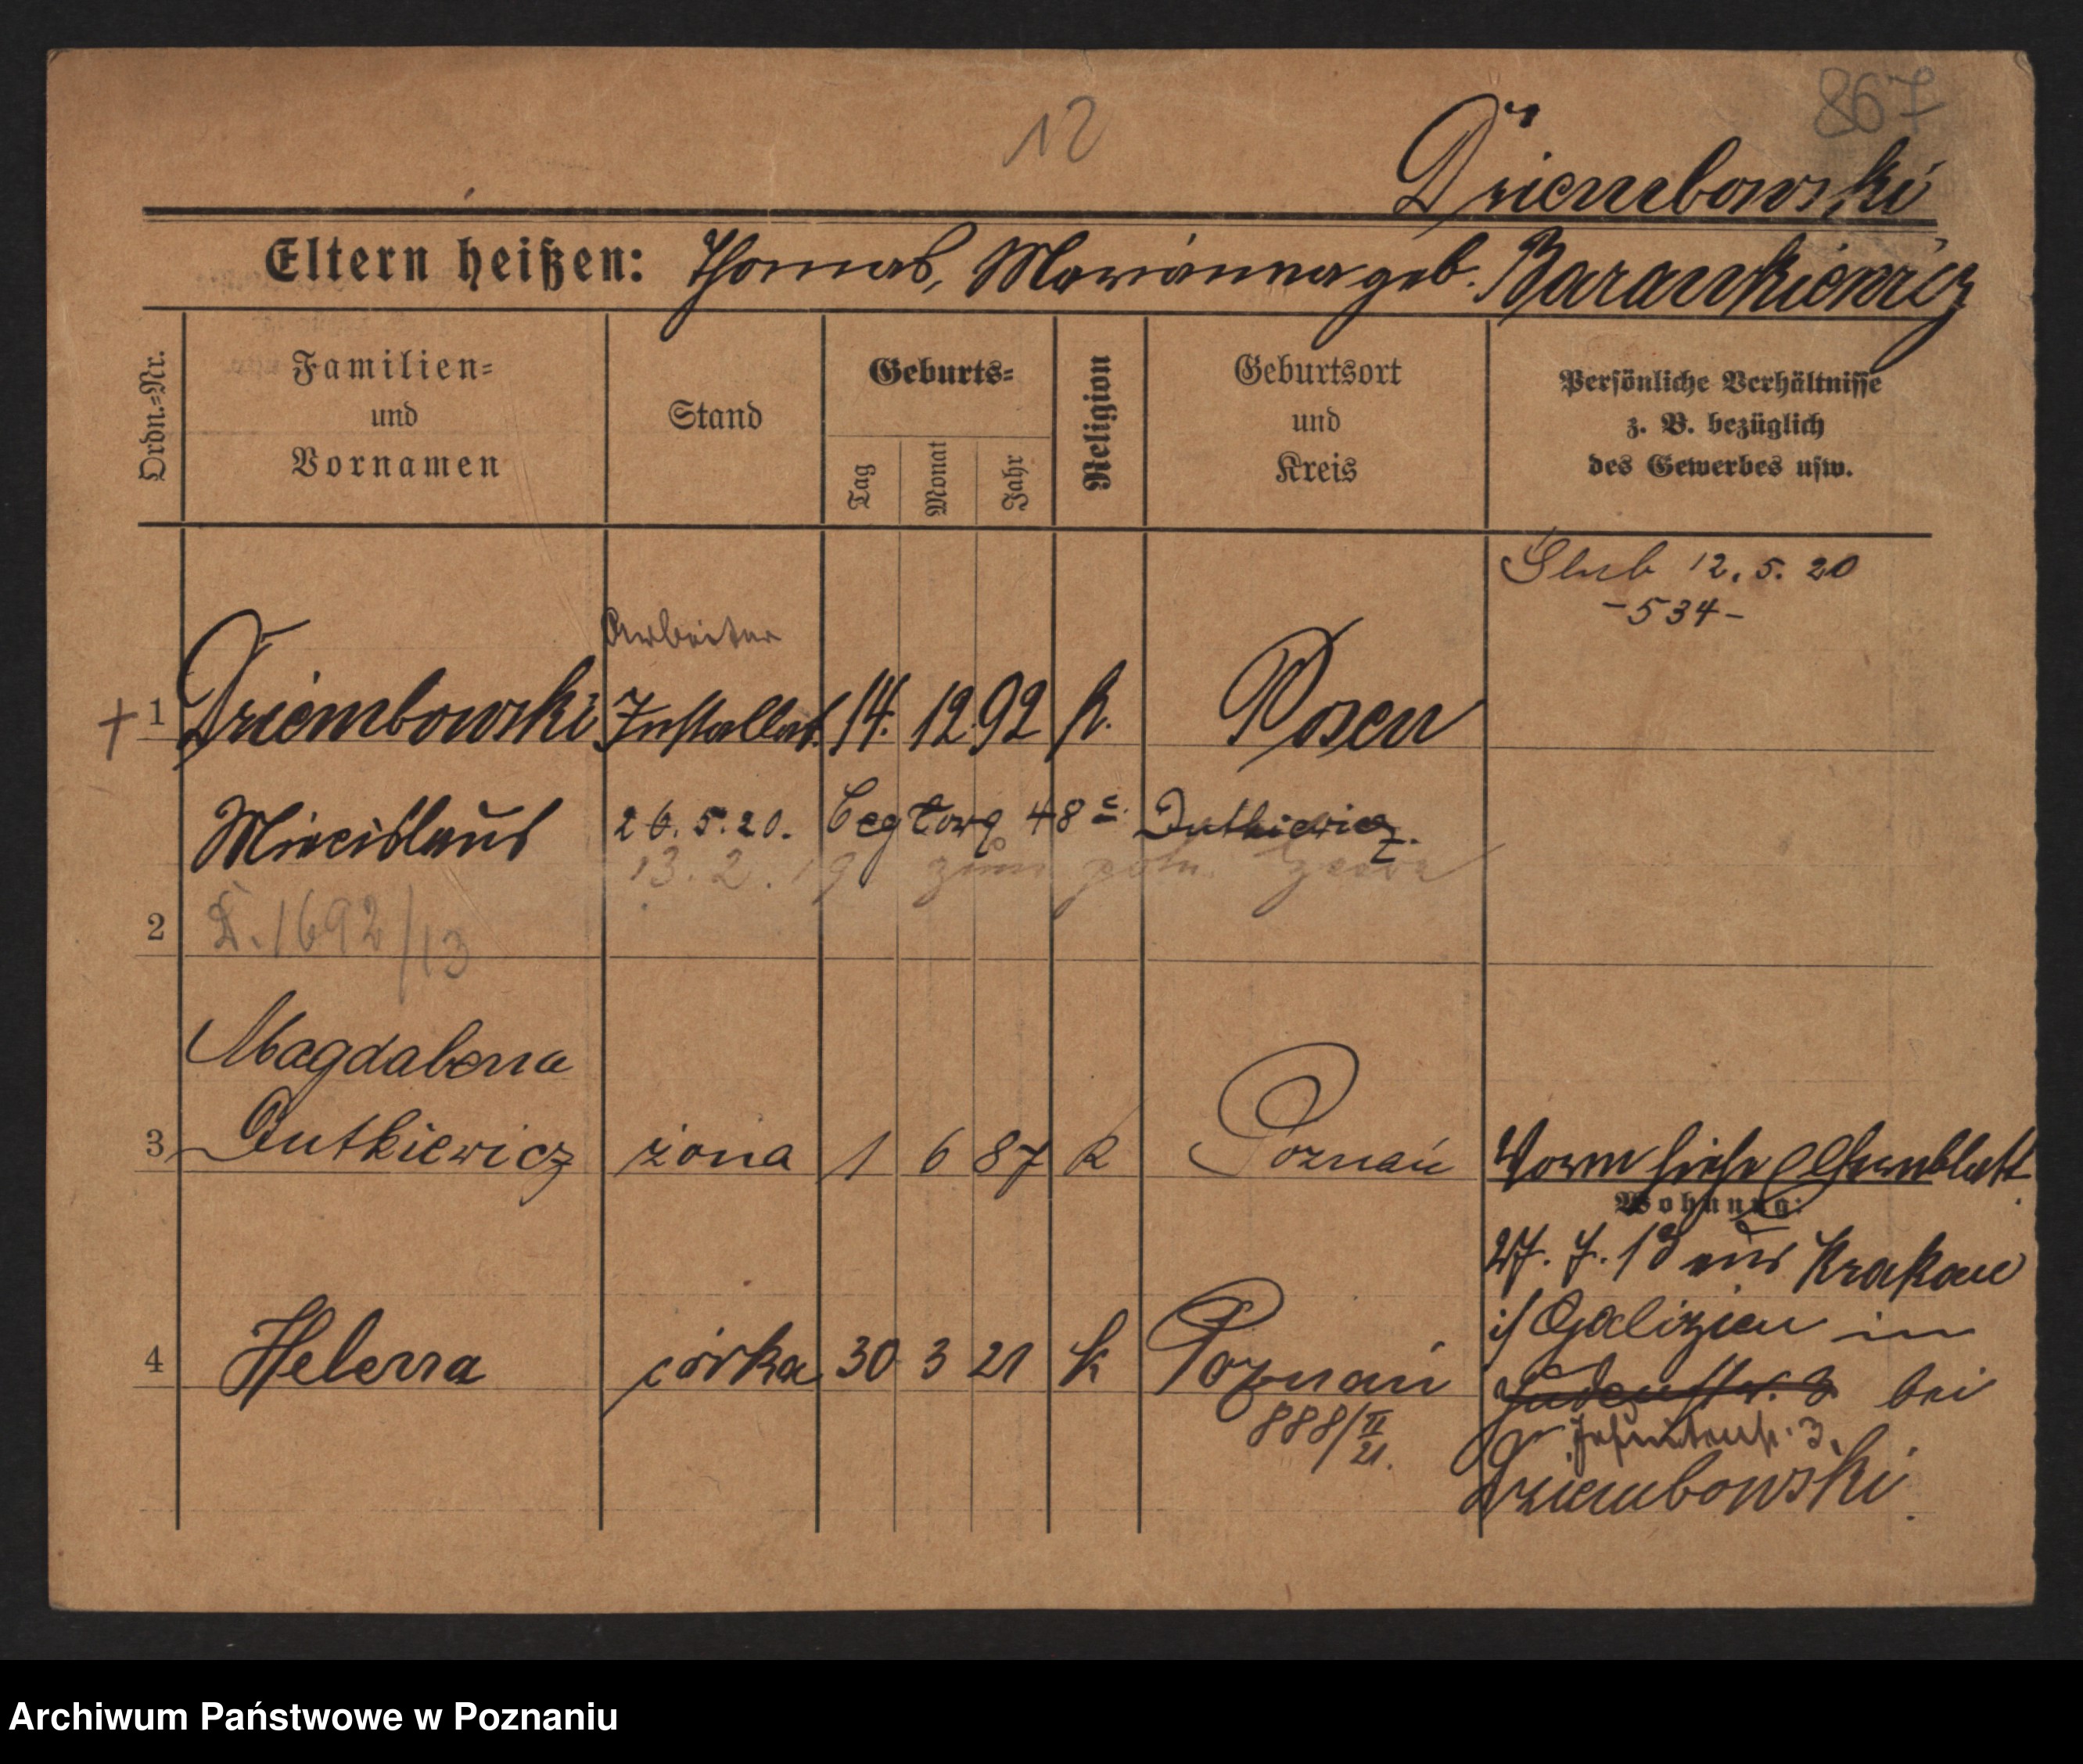 12
867
Dziembowski
Eltern heißen: Thomas, Marianna geb. Barankiewicz
Ordn.-Nr.
Familien-
und
Vornamen
Stand
Geburts-
Tag
Monat
Jahr
Religion
Geburtsort
und
Kreis
Persönliche Verhältnisse
z. B. bezüglich
des Gewerbes usw.
Ślub 12. 5. 20
- 534 -
Arbeiter
+ 1 Dziembowski Installat. 14. 12. 92 k. Posen
Miecislaus 26. 5. 20. 48 Dutkiewicz.
13. 2. 19 zum poln.
2 1692/13
Magdalena
3 Dutkiewicz żona 1 6 87 k Poznań
Vorm siehe Elternblatt
Wohnung:
27. 7. 18 aus Krakau
i/ Galizien in
Judenstr. 3 bei
Jesuitenstr. 3.
Dziembowski.
4 Helena córka 30 3 21 k Poznań
888/II
21.
Archiwum Państwowe w Poznaniu